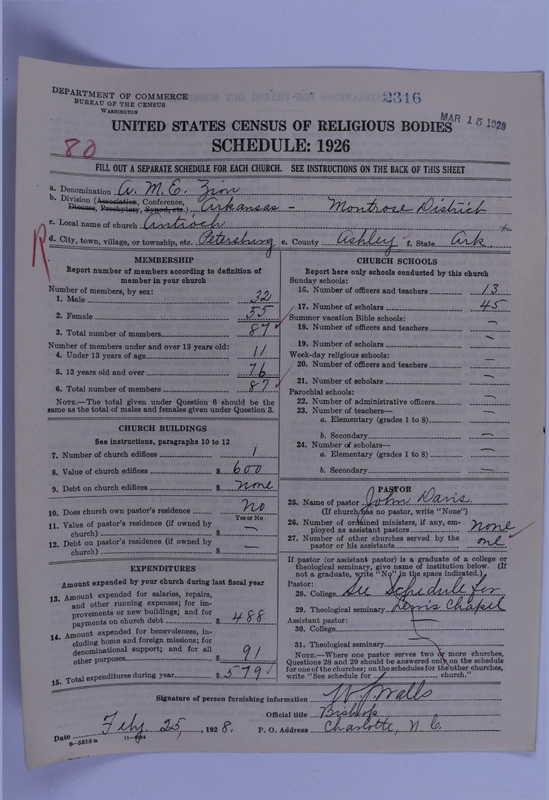 DEPARTMENT OF COMMERCE
BUREAU OF THE CENSUS
WASHINGTON
2316
MAR 15 1929
UNITED STATES CENSUS OF RELIGIOUS BODIES
SCHEDULE: 1926
80
FILL OUT A SEPARATE SCHEDULE FOR EACH CHURCH. SEE INSTRUCTIONS ON THE BACK OF THIS SHEET
a. Denomination A. M. E. Zion
b. Division (Association, Conference, Diocese, Presbytery, Synod, etc.) Arkansas - Montrose District
c. Local name of church Antioch
d. City, town, village, or township, etc. Petersburg e. County Ashley f. State Ark
R
MEMBERSHIP
Report number of members according to definition of
member in your church
Number of members, by sex:
1. Male 32
2. Female 55
3. Total number of members 87
Number of members under and over 13 years old:
4. Under 13 years of age 11
5. 13 years old and over 76
6. Total number of members 87
NOTE.—The total given under Question 6 should be the
same as the total of males and females given under Question 3.
CHURCH BUILDINGS
See instructions, paragraphs 10 to 12
7. Number of church edifices 1
8. Value of church edifices $ 600
9. Debt on church edifices $ none
10. Does church own pastor's residence No
Yes or No
11. Value of pastor's residence (if owned by
church) $ —
12. Debt on pastor's residence (if owned by
church) $ —
EXPENDITURES
Amount expended by your church during last fiscal year
13. Amount expended for salaries, repairs,
and other running expenses; for im-
provements or new buildings; and for
payments on church debt $ 488
14. Amount expended for benevolences, in-
cluding home and foreign missions; for
denominational support; and for all
other purposes $ 91
15. Total expenditures during year $ 579
CHURCH SCHOOLS
Report here only schools conducted by this church
Sunday schools:
16. Number of officers and teachers 13
17. Number of scholars 45
Summer vacation Bible schools:
18. Number of officers and teachers —
19. Number of scholars —
Week-day religious schools:
20. Number of officers and teachers —
21. Number of scholars —
Parochial schools:
22. Number of administrative officers —
23. Number of teachers—
a. Elementary (grades 1 to 8) —
b. Secondary —
24. Number of scholars—
a. Elementary (grades 1 to 8) —
b. Secondary —
PASTOR
25. Name of pastor John Davis
(If church has no pastor, write "None")
26. Number of ordained ministers, if any, em-
ployed as assistant pastors none
27. Number of other churches served by the
pastor or his assistants one
If pastor (or assistant pastor) is a graduate of a college or
theological seminary, give name of institution below. (If
not a graduate, write "No" in the space indicated.)
Pastor:
28. College See Schedule for
29. Theological seminary Chapel
Assistant pastor:
30. College —
31. Theological seminary —
NOTE.—Where one pastor serves two or more churches,
Questions 28 and 29 should be answered only on the schedule
for one of the churches; on the schedules for the other churches,
write "See schedule for church."
Signature of person furnishing information W J Walls
Official title Bishop
Date Feby. 25, 1928. P. O. Address Charlotte, N. C.
8—5513a